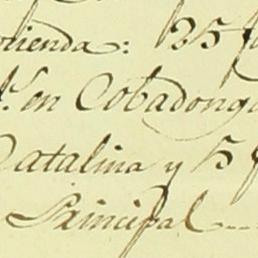 otienda: 25 f
en Cobadonga
Catalina y 5 f
Principal